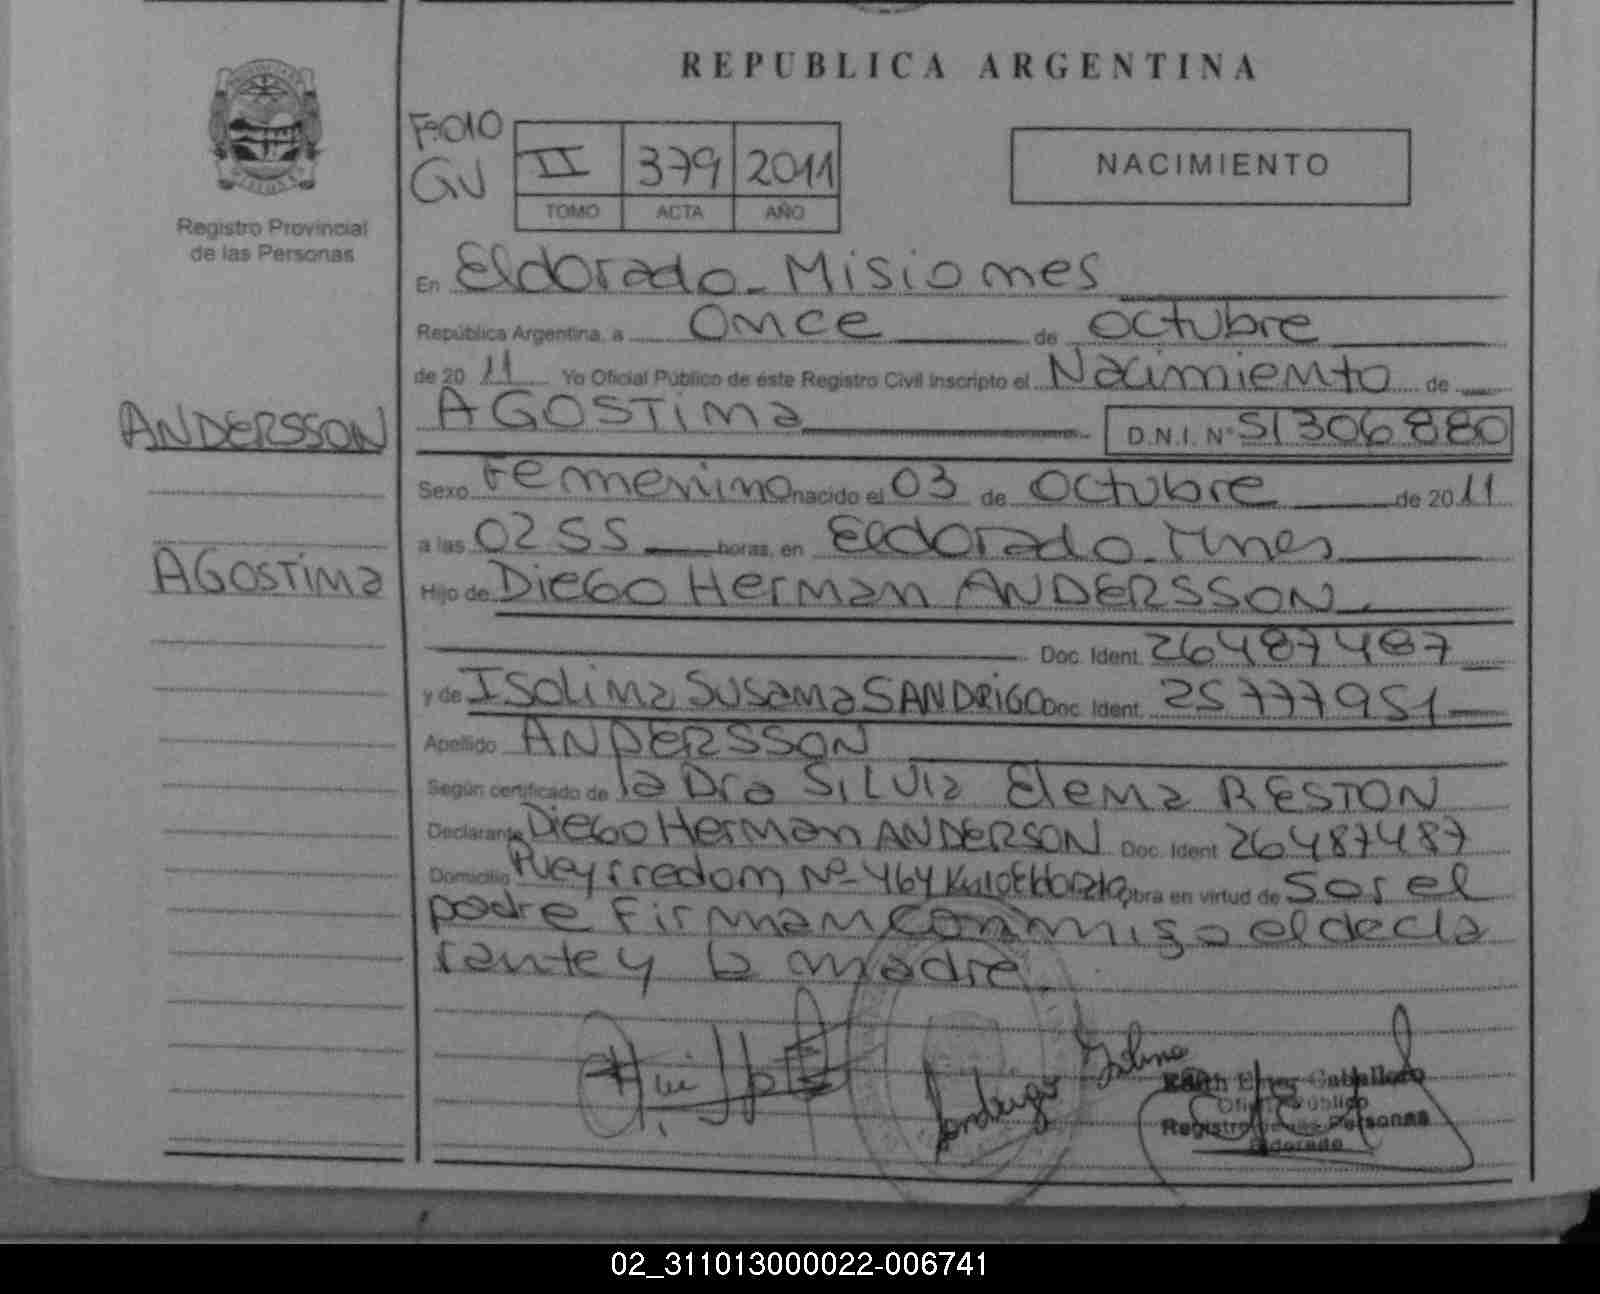 REPUBLICA ARGENTINA
Registro Provincial
de las Personas
Fº:010
GU
II 379 2011
TOMO ACTA AÑO
NACIMIENTO
En Eldorado - Misiones
República Argentina, a Once de octubre
de 20 11 Yo Oficial Público de éste Registro Civil Inscripto el Nacimiento de
ANDERSSON
AGOSTina D.N.I. Nº 51306880
Sexo Femenino nacido el 03 de Octubre de 20 11
a las 0255 horas, en Eldorado - Mnes
AGOSTina
Hijo de Diego Hernan ANDERSSON
Doc. Ident. 26487487
y de Isolina Susana SANDRIGO Doc. Ident. 25777951
Apellido ANDERSSON
Según certificado de la Dra SILVIa Elena RESTON
Declarante Diego Hernan ANDERSON Doc. Ident 26487487
Domicilio Pueyrredon Nº 464 obra en virtud de Ser el
padre Firman conmigo el decla
rante y la madre.
Sandrigo Isolina
Edith Caballero
Oficial Público
Registro de las Personas
Eldorado
02_311013000022-006741